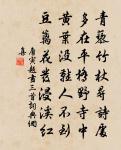 青藜竹杖尋詩處
多在平橋野寺中
黃葉沒鞋人不到
豆籬花發浸溪紅
唐寅題畫三首詞典網
喜